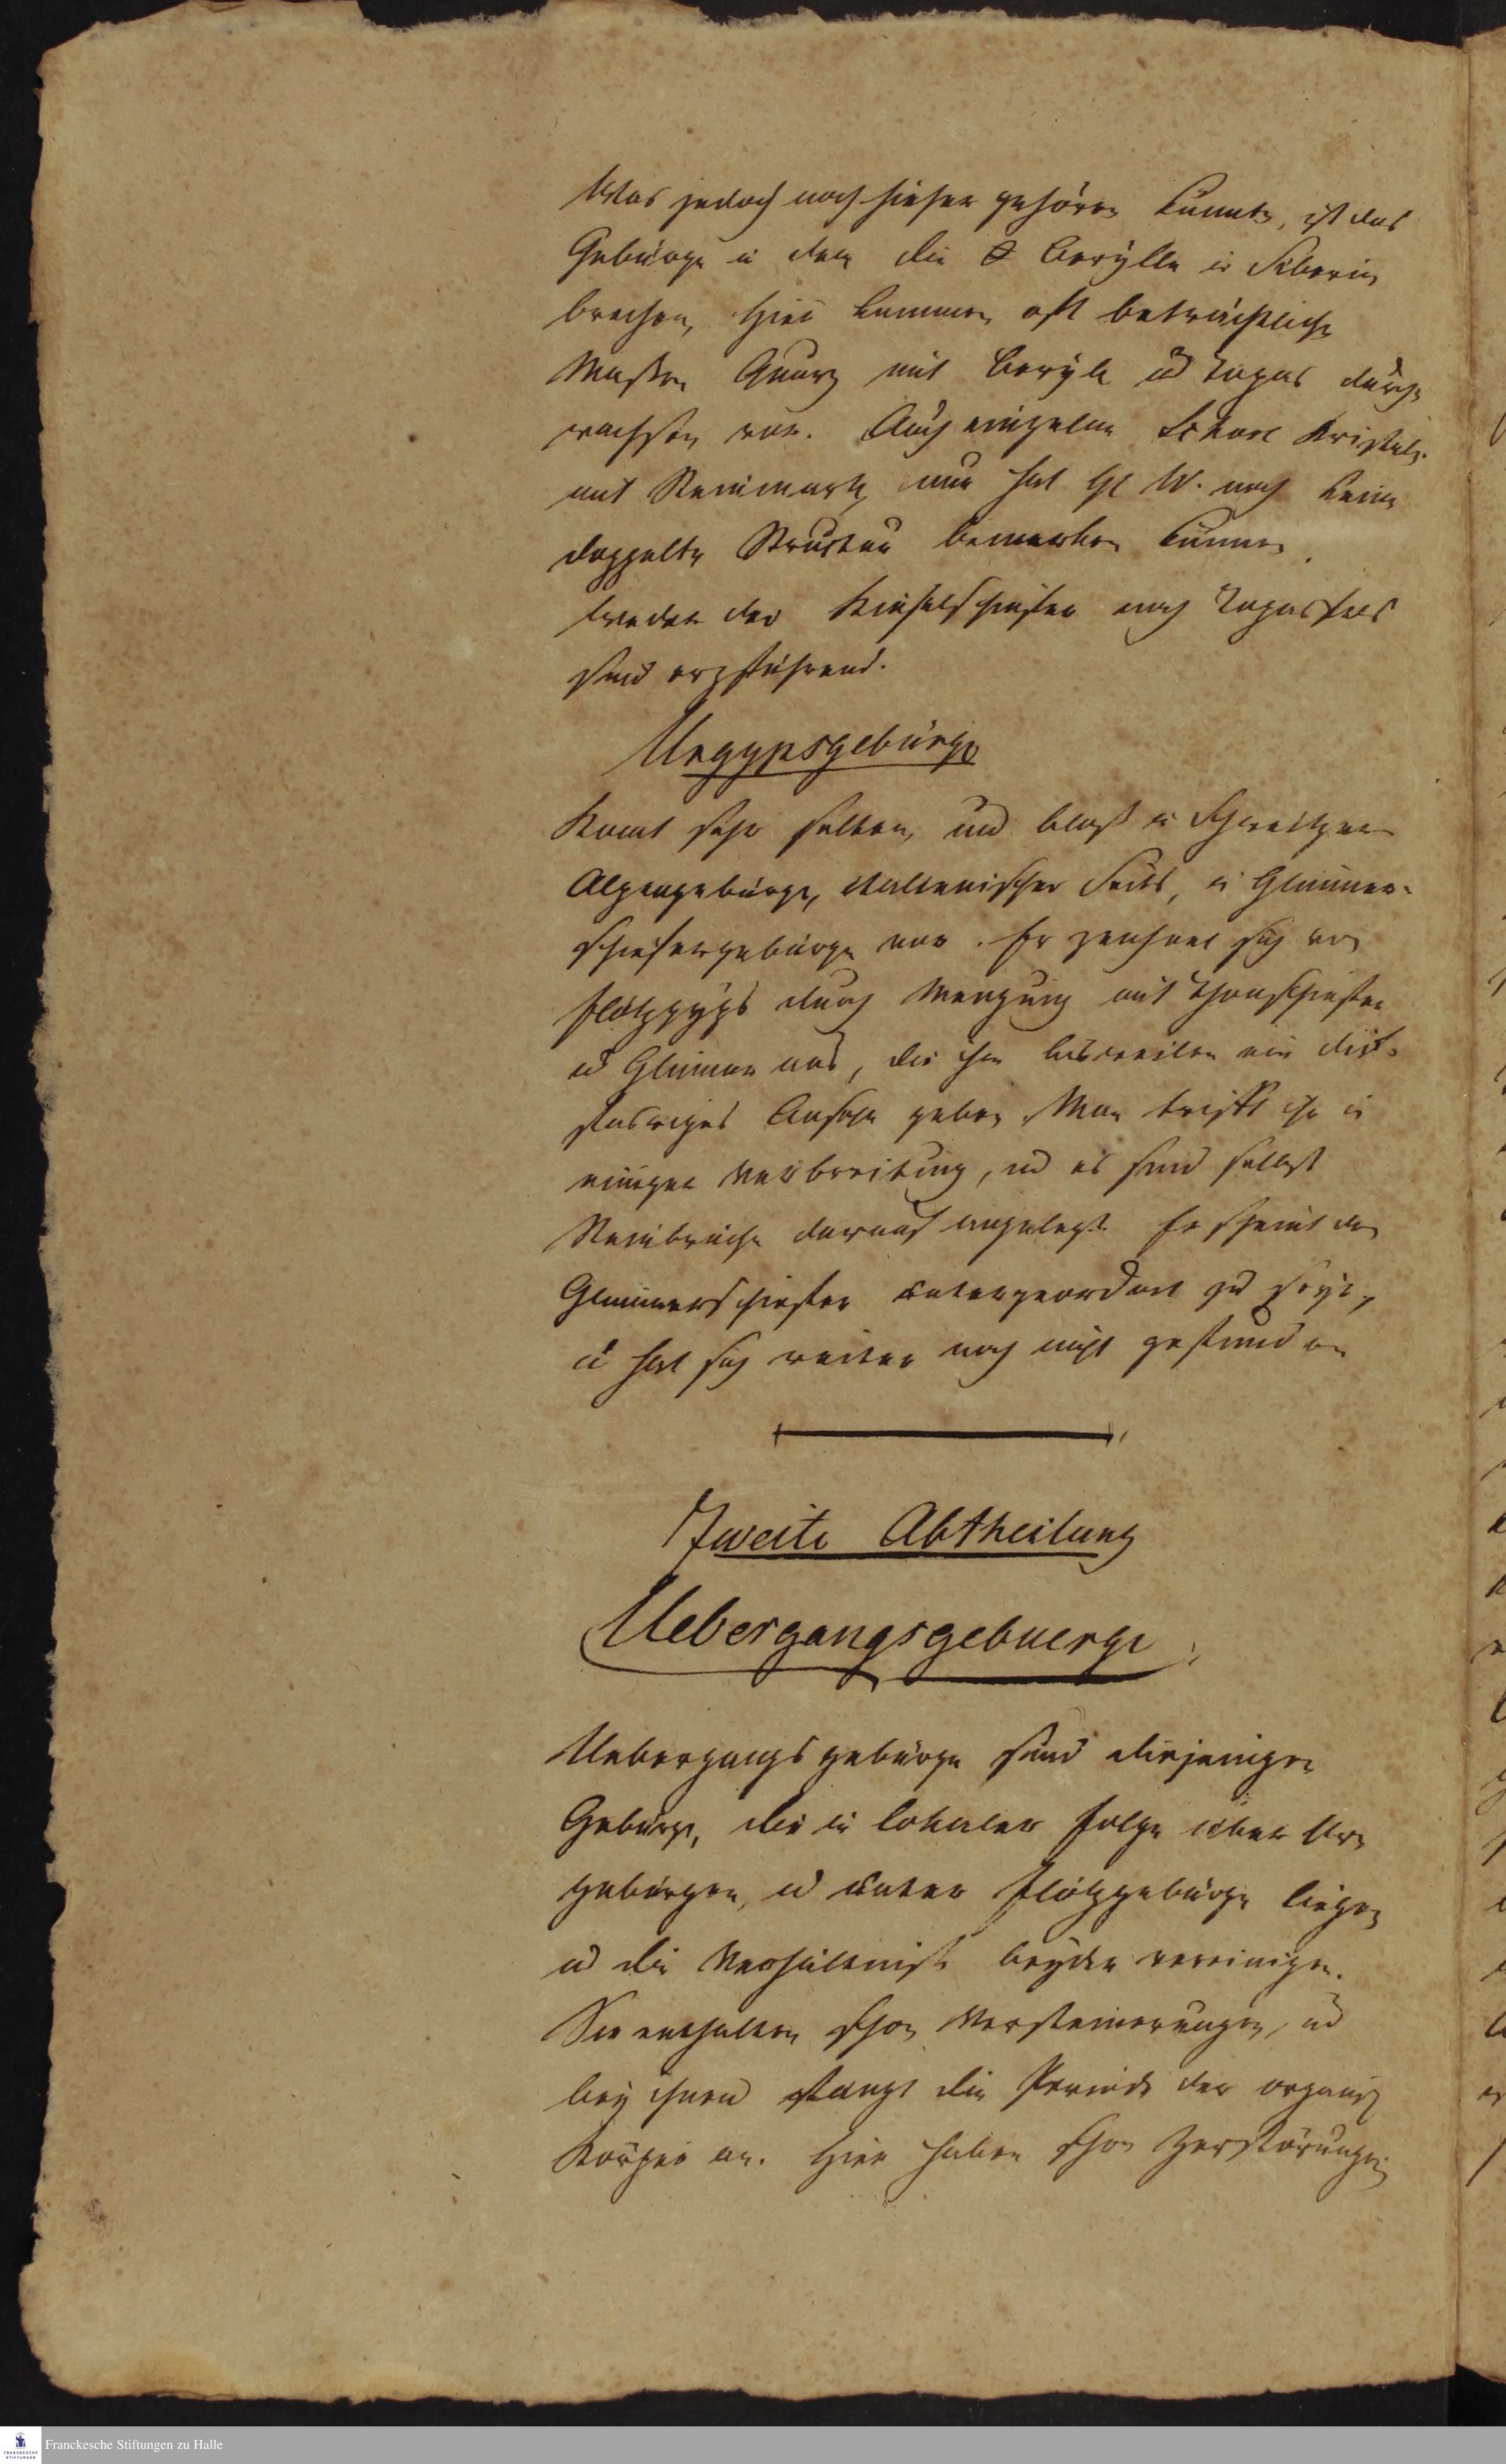 Was jedoch noch hieher gehören könnte, ist das
Gebürge in dem die Berylle in Siberien
brechen, hier kommen oft beträchtliche
Massen Quarz mit Beryll und Topas durch-
wachsen vor. Auch einzelne Schörl Kristalle
mit Steinmark, nur hat H W. noch keine
doppelte Structur bemerken können.
Weder der Kieselschiefer noch Topasfels
sind erzführend.
Urgypsgebürge
Komt sehr selten, und bloß in Schweitzer
Alpengebürge, italienischer Seits, in Glimmer-
schiefergebürge vor. Er zeichnet sich von
Flötzgyps durch Mengung mit Thonschiefer
und Glimmer aus, die ihm bisweilen ein
Ansehn geben. Man trifft ihn in
einiger Verbreitung, und es sind selbst
Steinbrüche darauf angelegt. Er scheint den
Glimmerschiefer untergeordnet zu seyn,
u hat sich weiter noch nicht gefunden
Zweite Abtheilung
Uebergangsgebuerge
Uebergangsgebürge sind diejenigen
Gebürge, die in lokaler Folge über Ur-
gebürgen, und unter Flötzgebürge liegen
und die Verhältnisse beyder vereinigen.
Sie enthalten schon Versteinerungen, und
bey ihnen fängt die Periode der organisch
Körper an. Hier haben schon Zerstörungen
Franckesche Stiftungen zu Halle